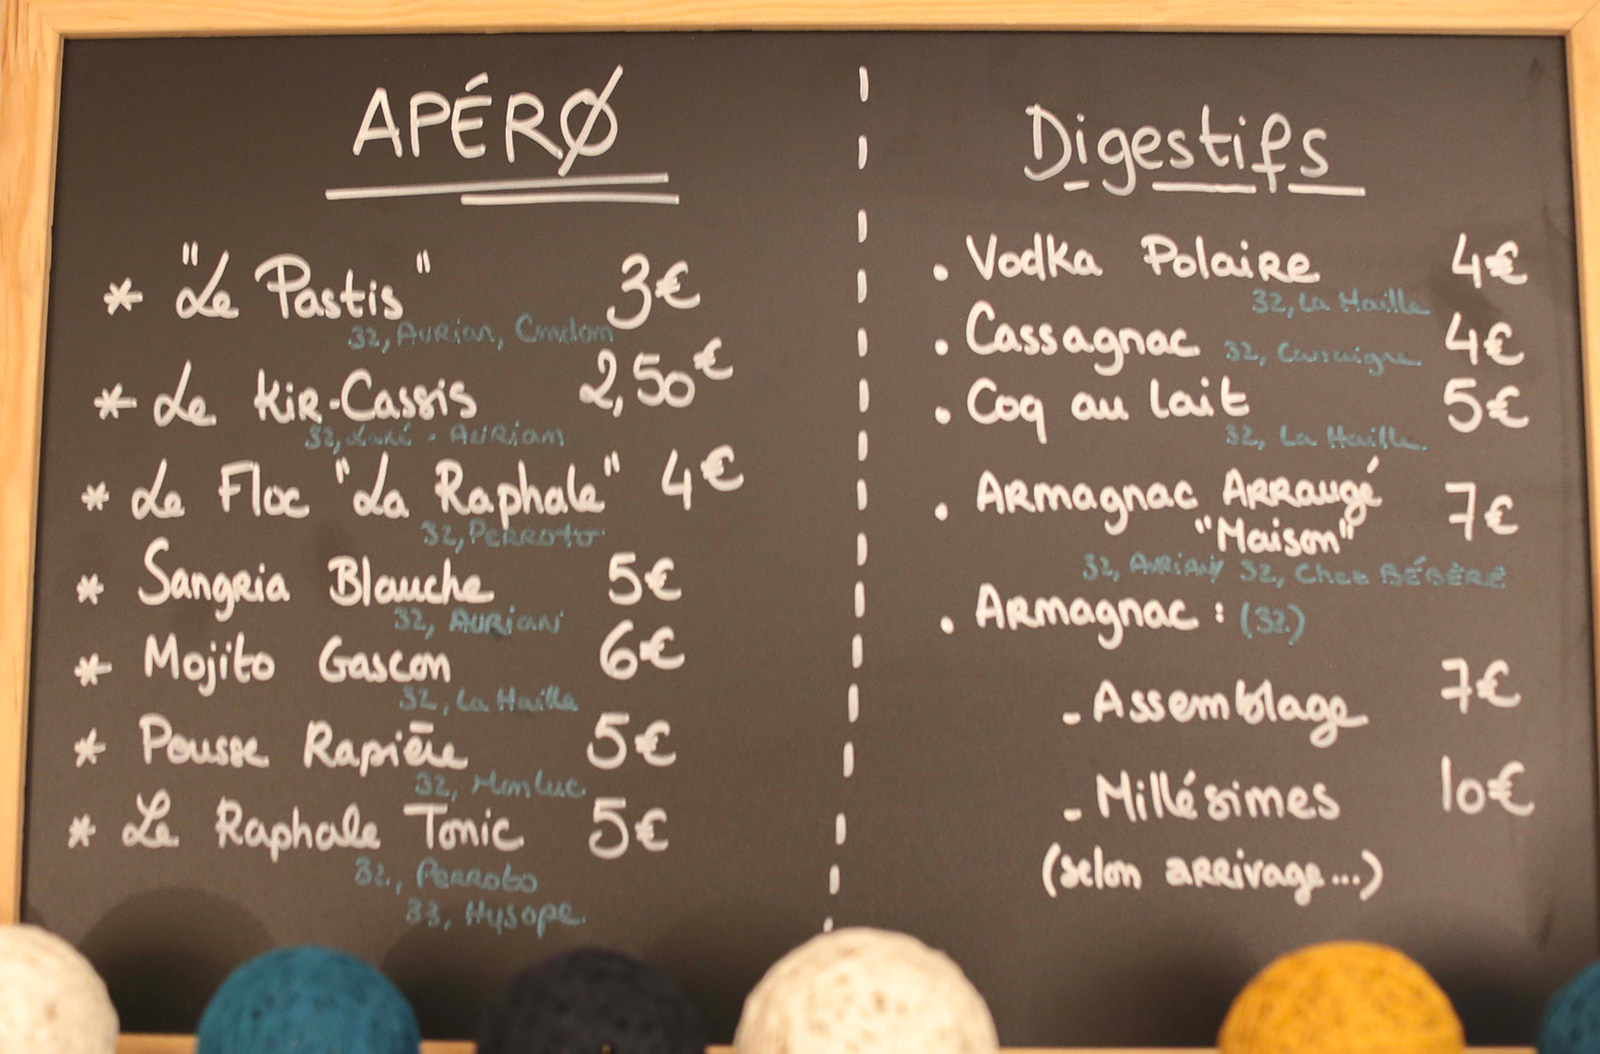 APÉRØ
* "Le Pastis" 3€
32, Aurian, Condom
* Le Kir-Cassis 2,50€
32, - Aurian
* Le Floc "La Raphale" 4€
32, Perroto
* Sangria Blanche 5€
32, Aurian
* Mojito Gascon 6€
32, La Haille
* Pousse Rapière 5€
32, Monluc
* Le Raphale Tonic 5€
32, Perroto
33, Hysope
Digestifs
• Vodka Polaire 4€
32, La Haille
• Cassagnac 32, Cassaigne 4€
• Coq au lait 5€
32, La Haille
• Armagnac Arrangé 7€
"Maison"
32, Aurian/ 32, Chez BÉBÈRE
• Armagnac : (32)
- Assemblage 7€
- Millésimes 10€
(selon arrivage...)